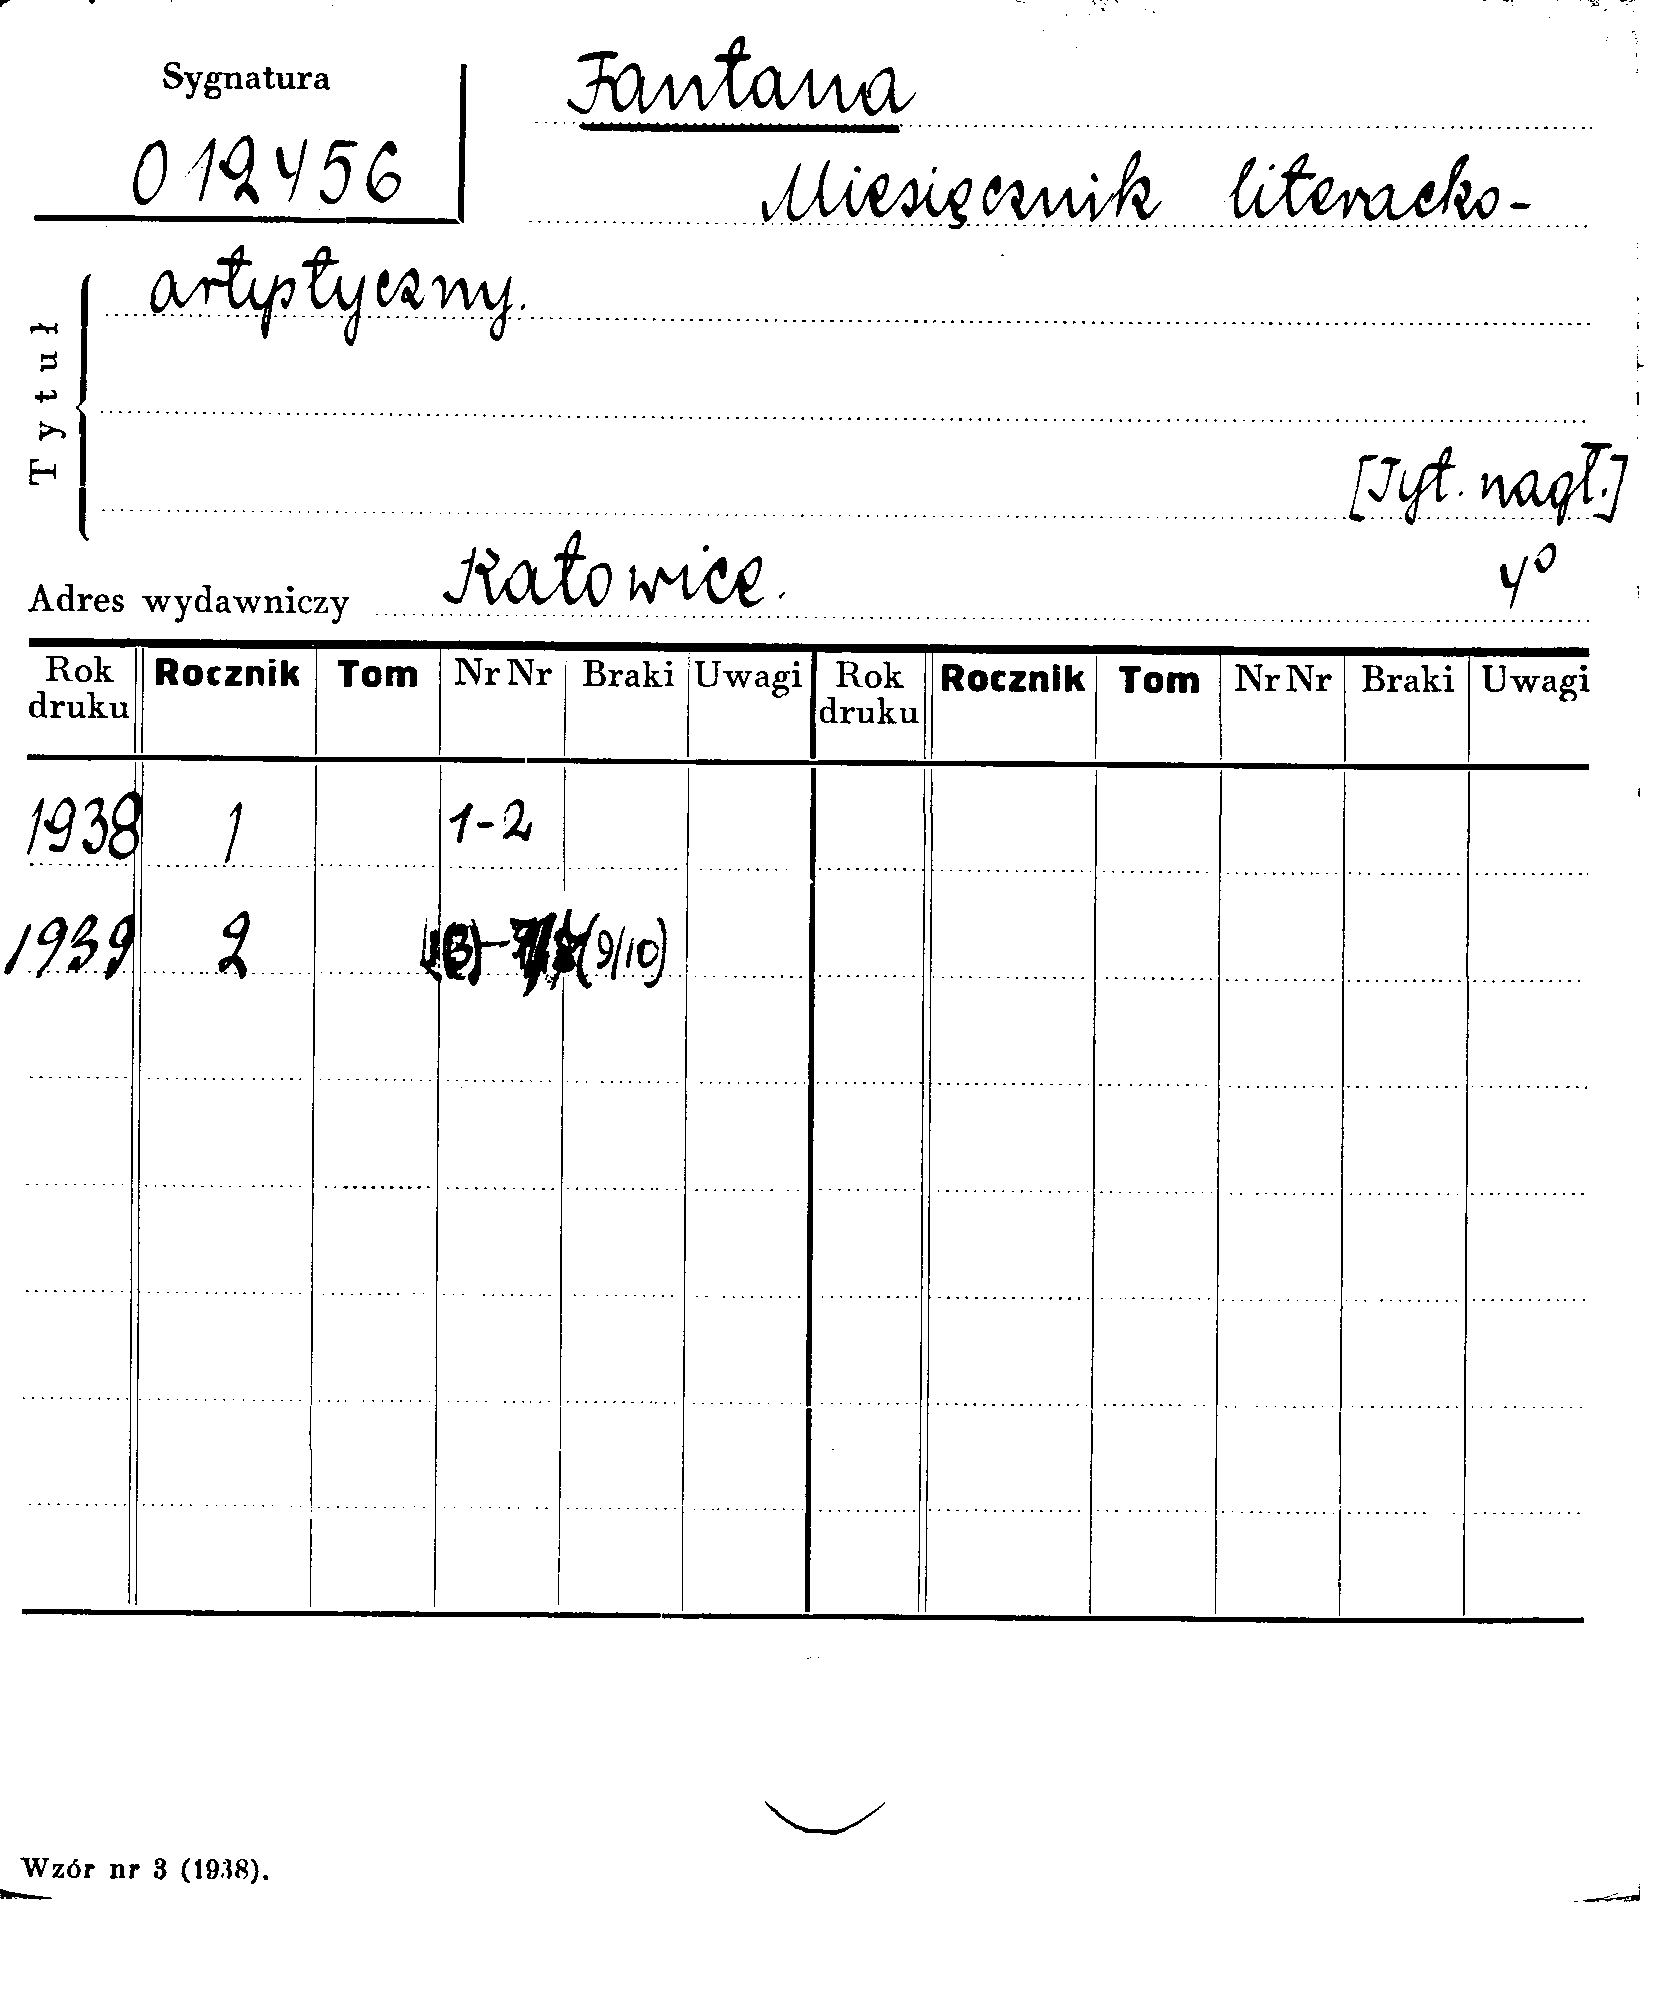 Sygnatura
012456
Fantana
Miesięcznik literacko-
artystyczny.
Tytuł
[Tyt. nagł.]
4º
Adres wydawniczy Katowice.
Rok druku Rocznik Tom Nr Nr Braki Uwagi Rok druku Rocznik Tom Nr Nr Braki Uwagi
1938 1 1-2
1939 2 (9/10)
Wzór nr 3 (1938).